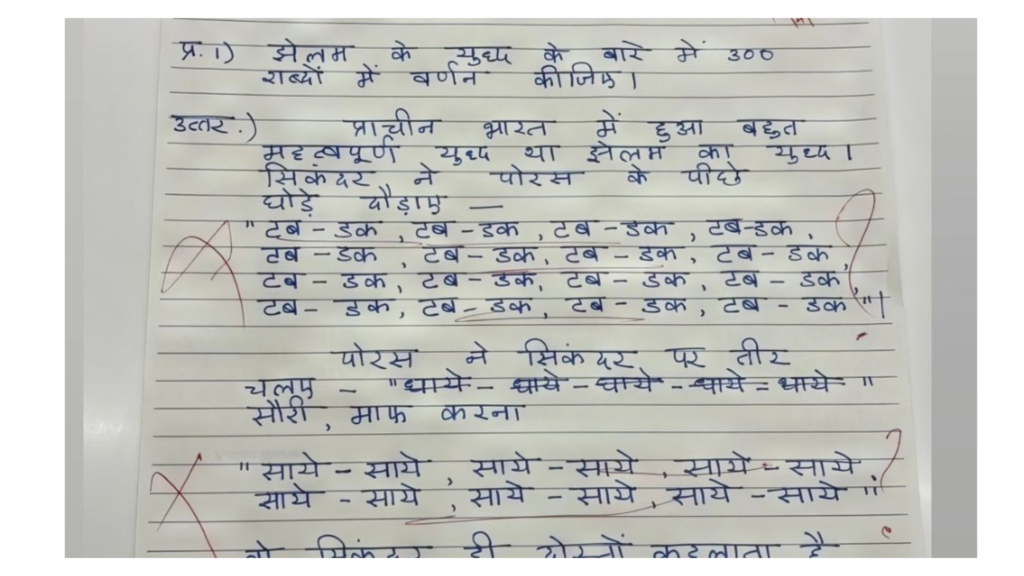 प्र.1) झेलम के युध्द के बारे में 300
शब्दों में वर्णन कीजिए।
उत्तर.) प्राचीन भारत में हुआ बहुत
महत्वपूर्ण युध्द था झेलम का युध्द।
सिकंदर ने पोरस के पीछे
घोड़े दौड़ाए —
" टब - डक , टब - डक , टब - डक , टब-डक ,
टब - डक , टब - डक, टब - डक, टब - डक ,
टब - डक, टब - डक, टब - डक, टब - डक ,
टब - डक, टब - डक, टब - डक, टब - डक "।
पोरस ने सिकंदर पर तीर
चलाए - "धाये - धाये - धाये - धाये - धाये "
सौरी , माफ करना
" साये - साये , साये - साये , साये - साये ,
साये - साये , साये - साये , साये - साये "
वो सिकंदर ही दोस्तों कहलाता है